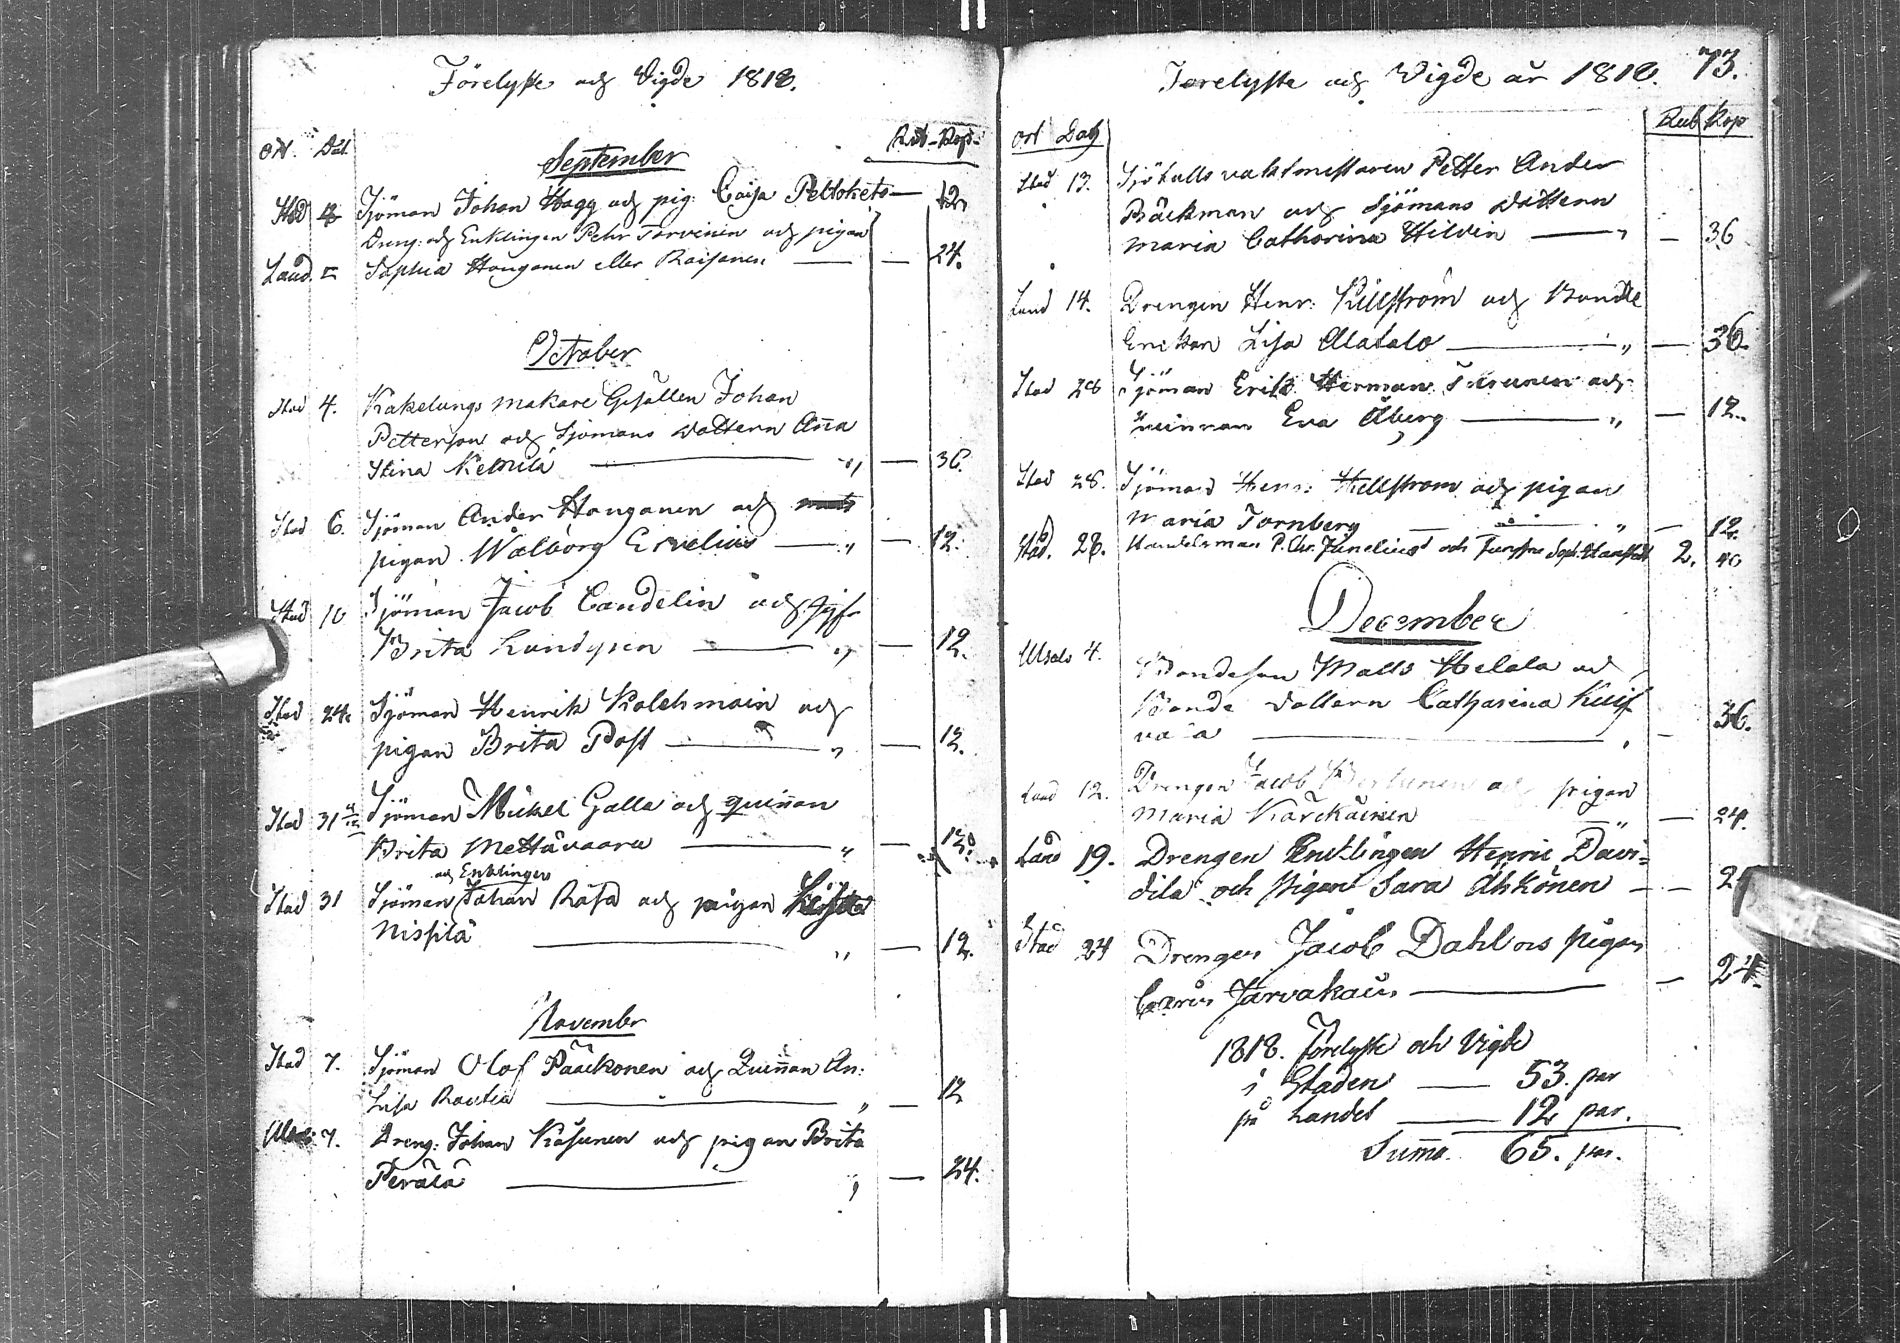 Förelyste och Vigde 1818.
Ort. Dat. Rub. Kop.
September
Stad Sjöman Johan Hagg och pig. Caija Peltokets — 12
Dreng. och Enklingen Pehr Torvinen och pigan
Land. Sophia Hauganen eller Raisanen — — 24.
October
Stad 4. Kakelungs makare Gesällen Johan
Petterson och Sjömans dottern Anna
Stina Kemilä — „ — 36.
Stad 6. Sjöman Ander Hanganen och
pigan Walborg Ervelius — „ — 12.
Stad 10 Sjöman Jacob Candelin och
Brita Lundgren — „ — 12.
Stad 24. Sjöman Henrik Kolehmain och
pigan Brita Post — „ — 12.
Stad 31 Sjöman Mickel Galla och quinnan
Brita Mettävaara — „ — 12.
och Enklingen
Stad 31 Sjöman Johan Räsä och pigan
Nissilä — „ — 12.
November
Stad 7. Sjöman Olof Pääckonen och Quinnan An:
Lisa Rautia — „ — 12
7. Dreng: Johan Käsunen och pigan Brita
Perälä — „ — 24.
Förelyste och Vigde år 1818. 73.
Ort Dag Rub Kop
Stad 13. Sjötulls vaktmestaren Petter Ander
Bäckman och Sjömans dottern
Maria Catharina Hilden — „ — 36
Land 14. Drengen Henr: Killström och Bonde
Enckan Lisa Alatalo — „ — 36.
Stad 28 Sjöman Erik Herman och
quinnan Eva Åberg — „ — 12.
Stad 28. Sjöman Henr: Hellstrom och pigan
Maria Tornberg — „ — 12.
Stad. 28. Handelsman P. Chr. Junelius och Jungfru Soph. 2. 40
December
4. Bondeson Matts Helala och
Bonde dottern Catharina Kuif
vala — „ — 36.
Land 12. Drengen Jacob och pigan
Maria Karckäinen — „ — 24.
Land 19. Drengen Enklingen Henric Davi=
dila och Pigan Sara Ahkönen — — 2
Stad 24 Drengen Jacob Dahl ois pigan
Carin Jarvakain — — 24.
1818. Förelyste och Vigde
i Staden — 53. par
på Landet — 12 par.
Summa. 65. par.